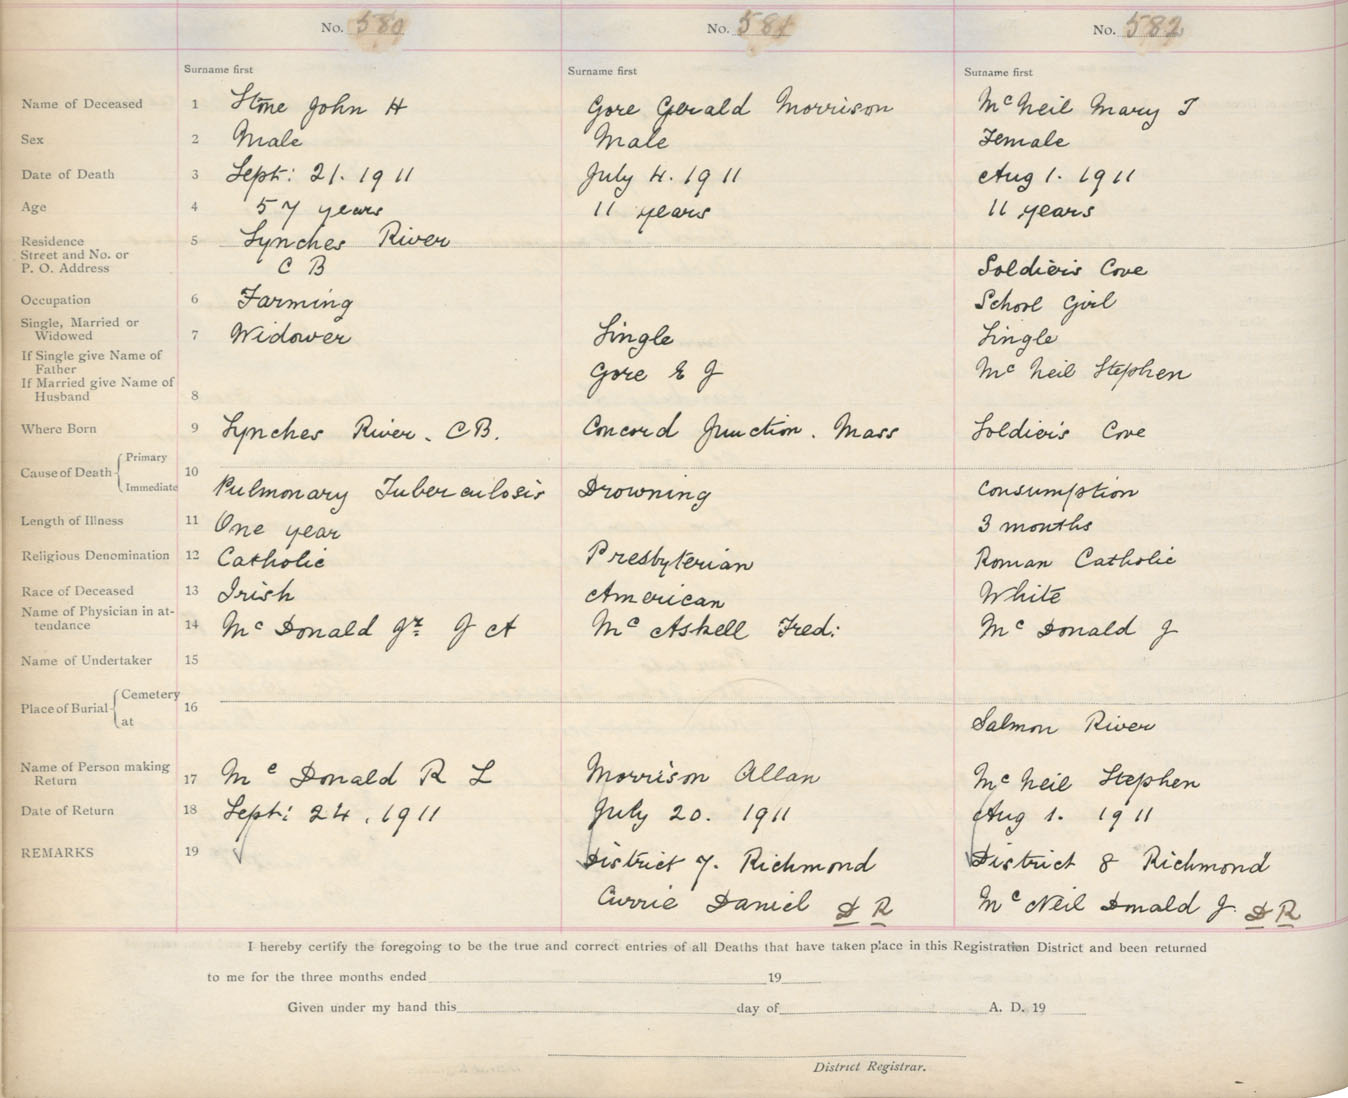 No. 580 No. 581 No. 582
Surname first Surname first Surname first
Name of Deceased 1 Stone John H Gore Gerald Morrison McNeil Mary T
Sex 2 Male Male Female
Date of Death 3 Sept: 21. 1911 July 4. 1911 Aug 1. 1911
Age 4 57 years 11 years 11 years
Residence 5 Lynches River
Street and No. or
P. O. Address C B Soldier's Cove
Occupation 6 Farming School Girl
Single, Married or
Widowed 7 Widower Single Single
If Single give Name of
Father Gore E J McNeil Stephen
If Married give Name of
Husband 8
Where Born 9 Lynches River. CB. Concord Junction. Mass Soldier's Cove
Cause of Death Primary 10
Immediate Pulmonary Tuberculosis Drowning Consumption
Length of Illness 11 One year 3 months
Religious Denomination 12 Catholic Presbyterian Roman Catholic
Race of Deceased 13 Irish American White
Name of Physician in at-
tendance 14 McDonald Jr. J A McAskell Fred: McDonald J
Name of Undertaker 15
Place of Burial Cemetery 16
at Salmon River
Name of Person making
Return 17 McDonald R L Morrison Allan McNeil Stephen
Date of Return 18 Sept: 24. 1911 July 20. 1911 Aug 1. 1911
REMARKS 19 District 7. Richmond District 8 Richmond
Currie Daniel D R McNeil Donald J. D R
I hereby certify the foregoing to be the true and correct entries of all Deaths that have taken place in this Registration District and been returned
to me for the three months ended 19
Given under my hand this day of A. D. 19
District Registrar.